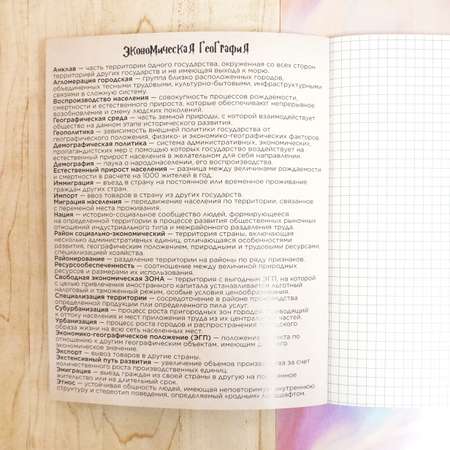 ЭКОНОМИЧЕСКАЯ ГЕОГРАФИЯ
Анклав — часть территории одного государства, окруженная со всех сторон
территорией других государств и не имеющая выхода к морю.
Агломерация городская — группа близко расположенных городов,
объединенных тесными трудовыми, культурно-бытовыми, инфраструктурными
связями в сложную систему.
Воспроизводство населения — совокупность процессов рождаемости,
смертности и естественного прироста, которые обеспечивают непрерывное
возобновление и смену людских поколений.
Географическая среда — часть земной природы, с которой взаимодействует
общество на данном этапе исторического развития.
Геополитика — зависимость внешней политики государства от
географического положения, физико- и экономико-географических факторов.
Демографическая политика — система административных, экономических,
пропагандистских мер с помощью которых государство воздействует на
естественный прирост населения в желательном для себя направлении.
Демография — наука о народонаселении, его воспроизводстве.
Естественный прирост населения — разница между величинами рождаемости
и смертности в расчете на 1000 жителей в год.
Иммиграция — въезд в страну на постоянное или временное проживание
граждан других стран.
Импорт — ввоз товаров в страну из других государств.
Миграция населения — передвижение населения по территории, связанное
с переменой места проживания.
Нация — историко-социальное сообщество людей, формирующееся
на определенной территории в процессе развития общественных рыночных
отношений индустриального типа и межрайонного разделения труда.
Район социально-экономический — территория страны, включающая
несколько административных единиц, отличающаяся особенностями
развития, географическим положением, природными и трудовыми ресурсами,
специализацией хозяйства.
Районирование — разделение территории на районы по ряду признаков.
Ресурсообеспеченность — соотношение между величиной природных
ресурсов и размерами их использования.
Свободная экономическая ЗОНА — территория с выгодным ЭГП, на которой
с целью привлечения иностранного капитала устанавливается льготный
налоговый и таможенный режим, особые условия ценообразования.
Специализация территории — сосредоточение в районе производства
определенной продукции или определенного вида услуг.
Субурбанизация — процесс роста пригородных зон городов
к оттоку населения и мест приложения труда из их частей.
Урбанизация — процесс роста городов и распространения городского
образа жизни на всю сеть населенных мест.
Экономико-географическое положение (ЭГП) — положение объекта по
отношению к другим географическим объектам, имеющим для него
экономическое значение.
Экспорт — вывоз товаров в другие страны.
Экстенсивный путь развития — увеличение объемов производства за счет
количественного роста производственных единиц.
Эмиграция — выезд граждан из своей страны в другую на постоянное
жительство или на длительный срок.
Этнос — устойчивая общность людей, имеющая неповторимую внутреннюю
структуру и стереотип поведения, определяемый «родным» ландшафтом.